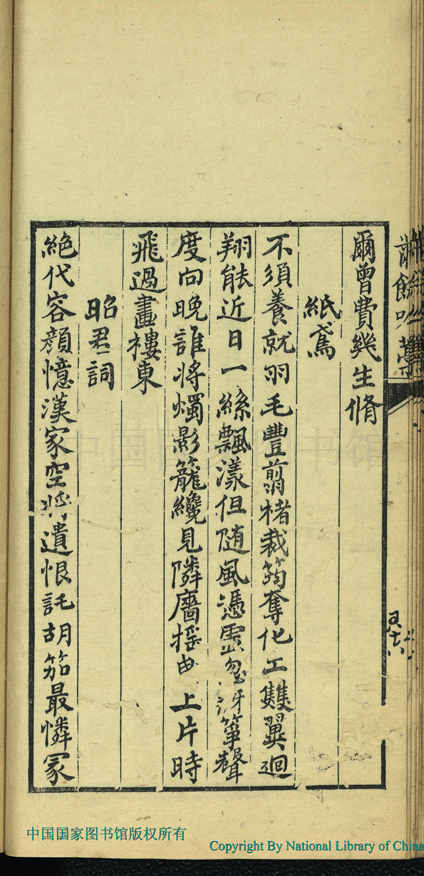 爾曾費幾生脩
紙鳶
不須養就羽毛豐翦楮裁筠奪化工雙翼迴
翔能近日一絲飄漾但随風憑虛忽訝箏聲
度向晚誰將燭影籠纔見隣牆搖曳上片時
飛過畫樓東
昭君詞
絶代容顔憶漢家空將遺恨託胡笳最憐冢
中国国家图书馆
中国国家图书馆版权所有
Copyright By National Library of China